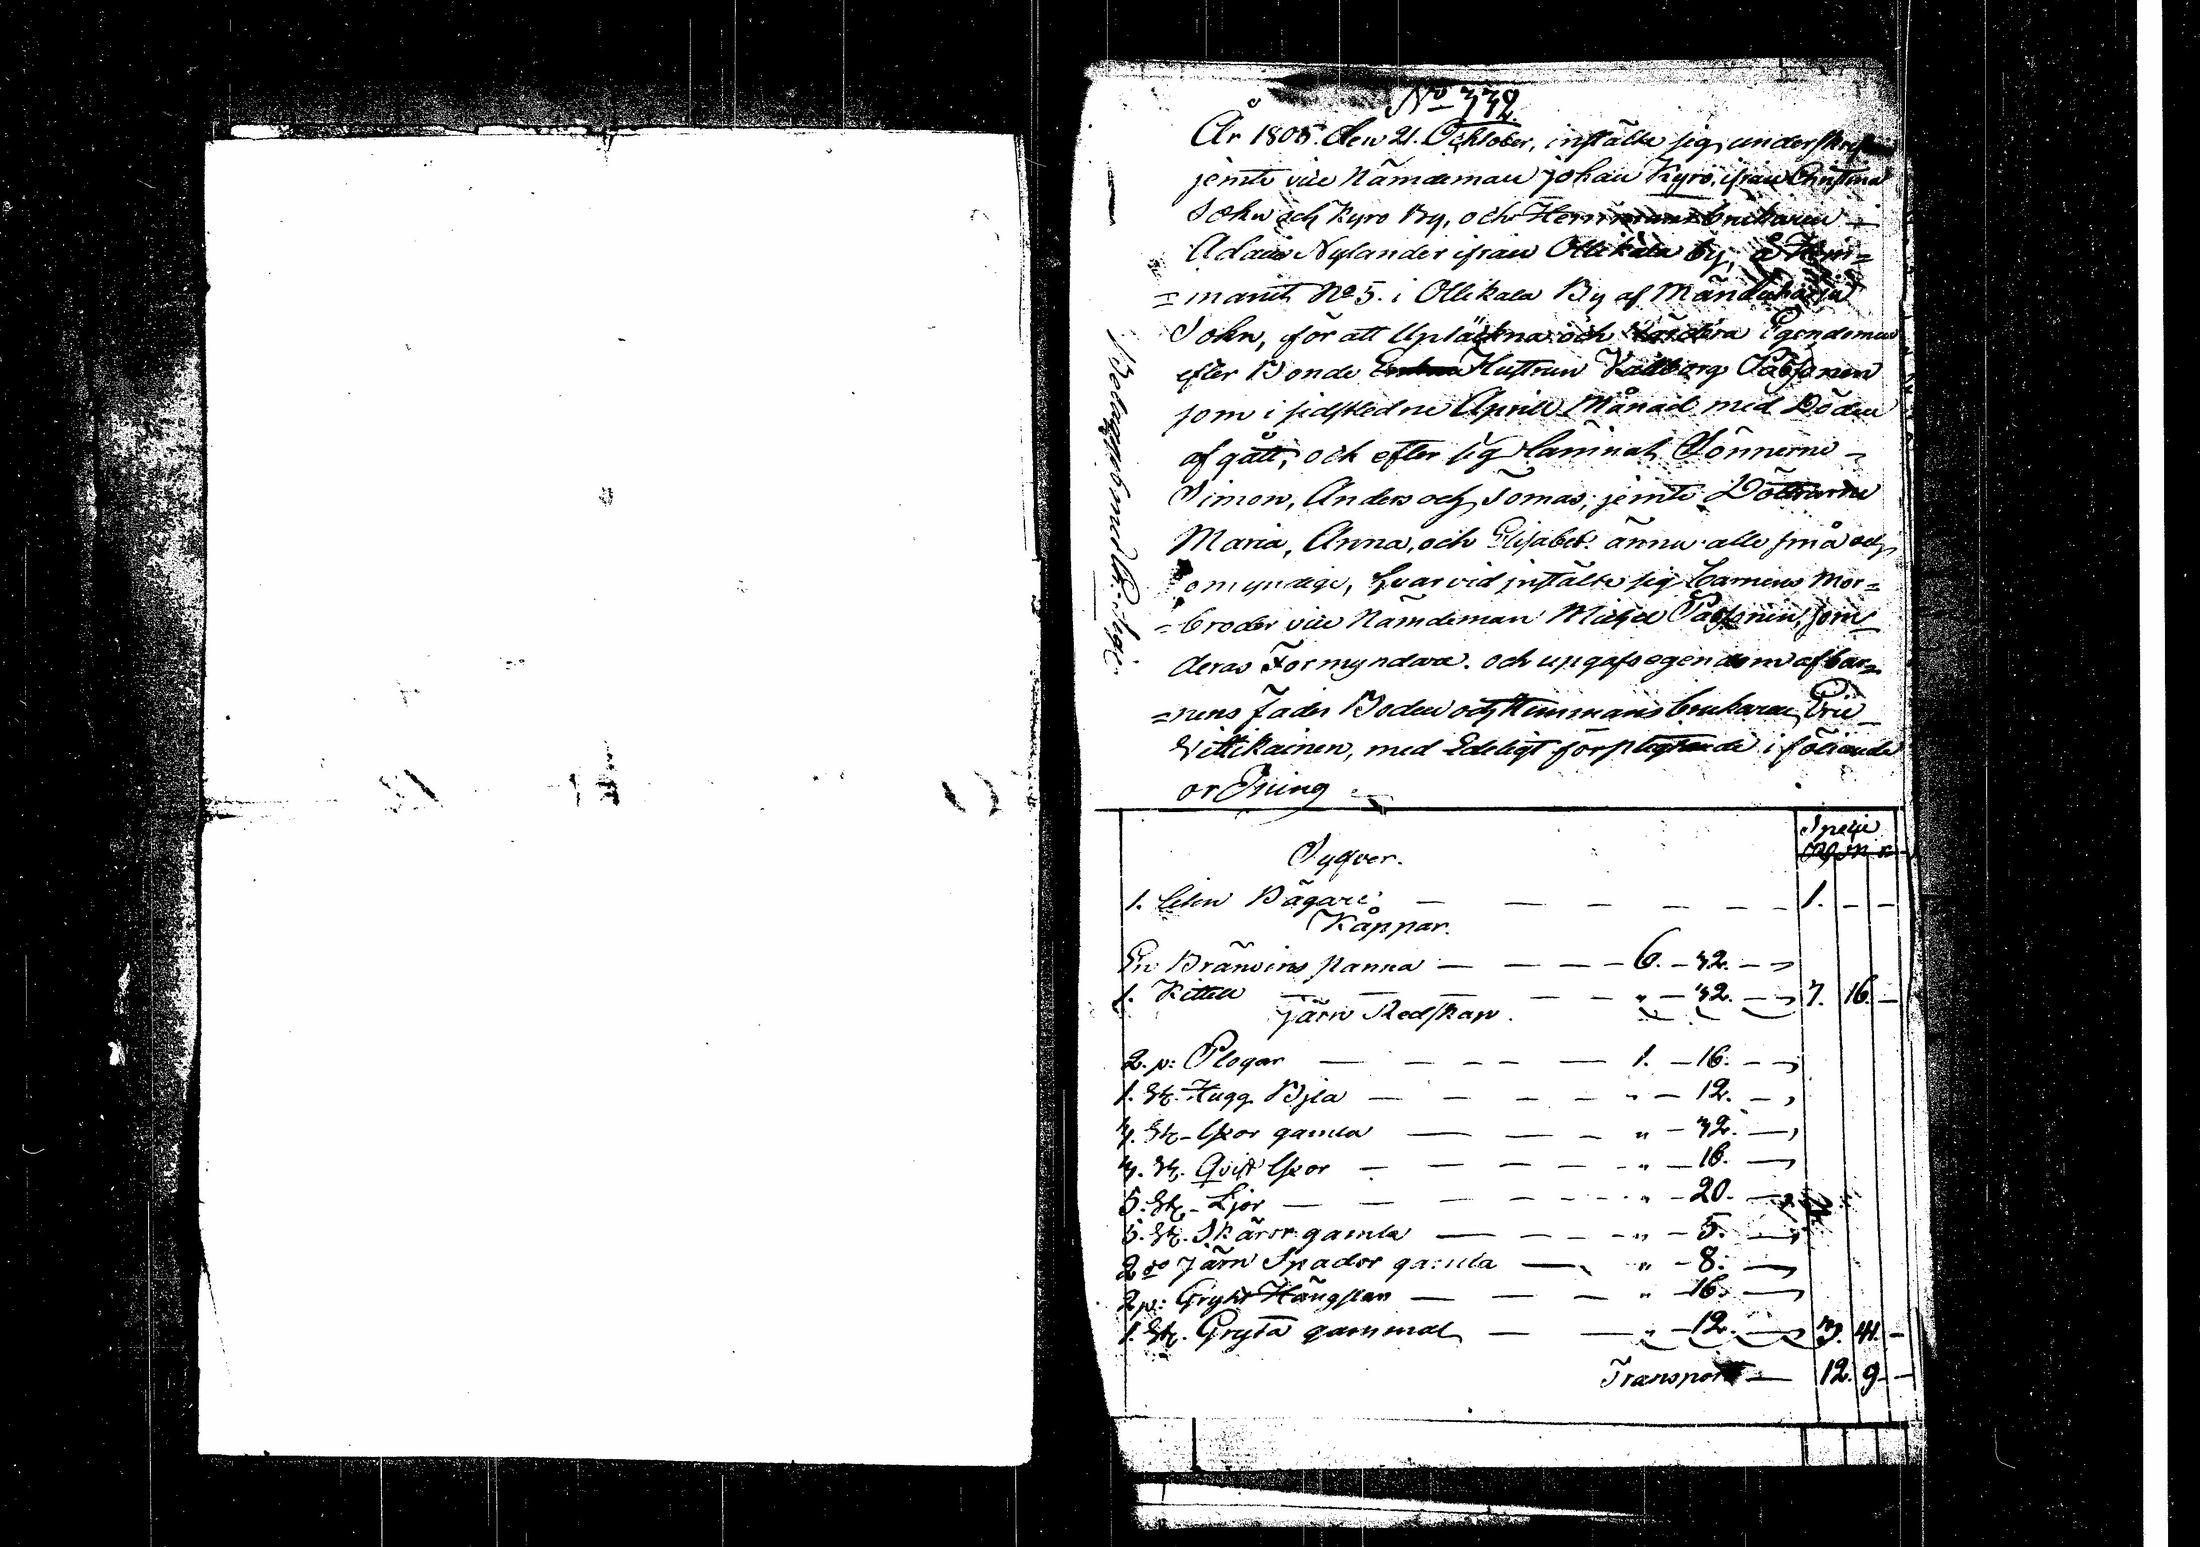 No 332.
År 1805. den 21. Ochtober, instälte sig underskrefne
jemte vice Nämdeman Johan Kyrö, ifrån Christina
Sokn och Kyro By, och Hemmansbrukaren
Adam Nylander ifrån Ollikala by, å Hem=
=manet No 5. i Ollikala By af Mändüharju
Sokn, för att Uptäckna och Värdera Egendomen
efter Bonde Hustrun Vallborg Pässonen
som i sidstledne Aprill Månad med Döden
afgått, och efter sig lämnat Sönnerne
Simon, Anders och Tomas, jemte Döttrarne
Maria, Anna, och Elisabet. ännu alle små och
omyndige, hvarvid instälte sig barnens Mor=
=broder vice Nämdeman Michel Pässonen, som
deras Formyndare. och upgafs egendom af bar=
=nens Fader Boden och Hemmans brukaren Eric
Vittikainen, med Edeligt förplegtande i följande
ordning
Belagga bond Lit:
Specie
Rd s r
Sylfver.
1. liten Bägare — 1. — —
Kåppar.
En Bränvins panna — 6. — 32. —
1. Kittell — " — 32. — 7. 16. —
Järn Redskap.
2. p: Plogar — 1. — 16. —
1. St. Hugg Bjla — " — 12. —
3. St. lxor gamla — " — 32. —
3. St. Qvist lxor — " — 16. —
5. St. Ljor — " — 20. —
5. St. Skäror gamla — " — 5. —
2 do Järn Spador gamla — " — 8. —
2 p: Grytr Hängslan — " — 16. —
1. St. Gryta gammal — " — 12. — 3. 41. —
Transport — 12. 9. —